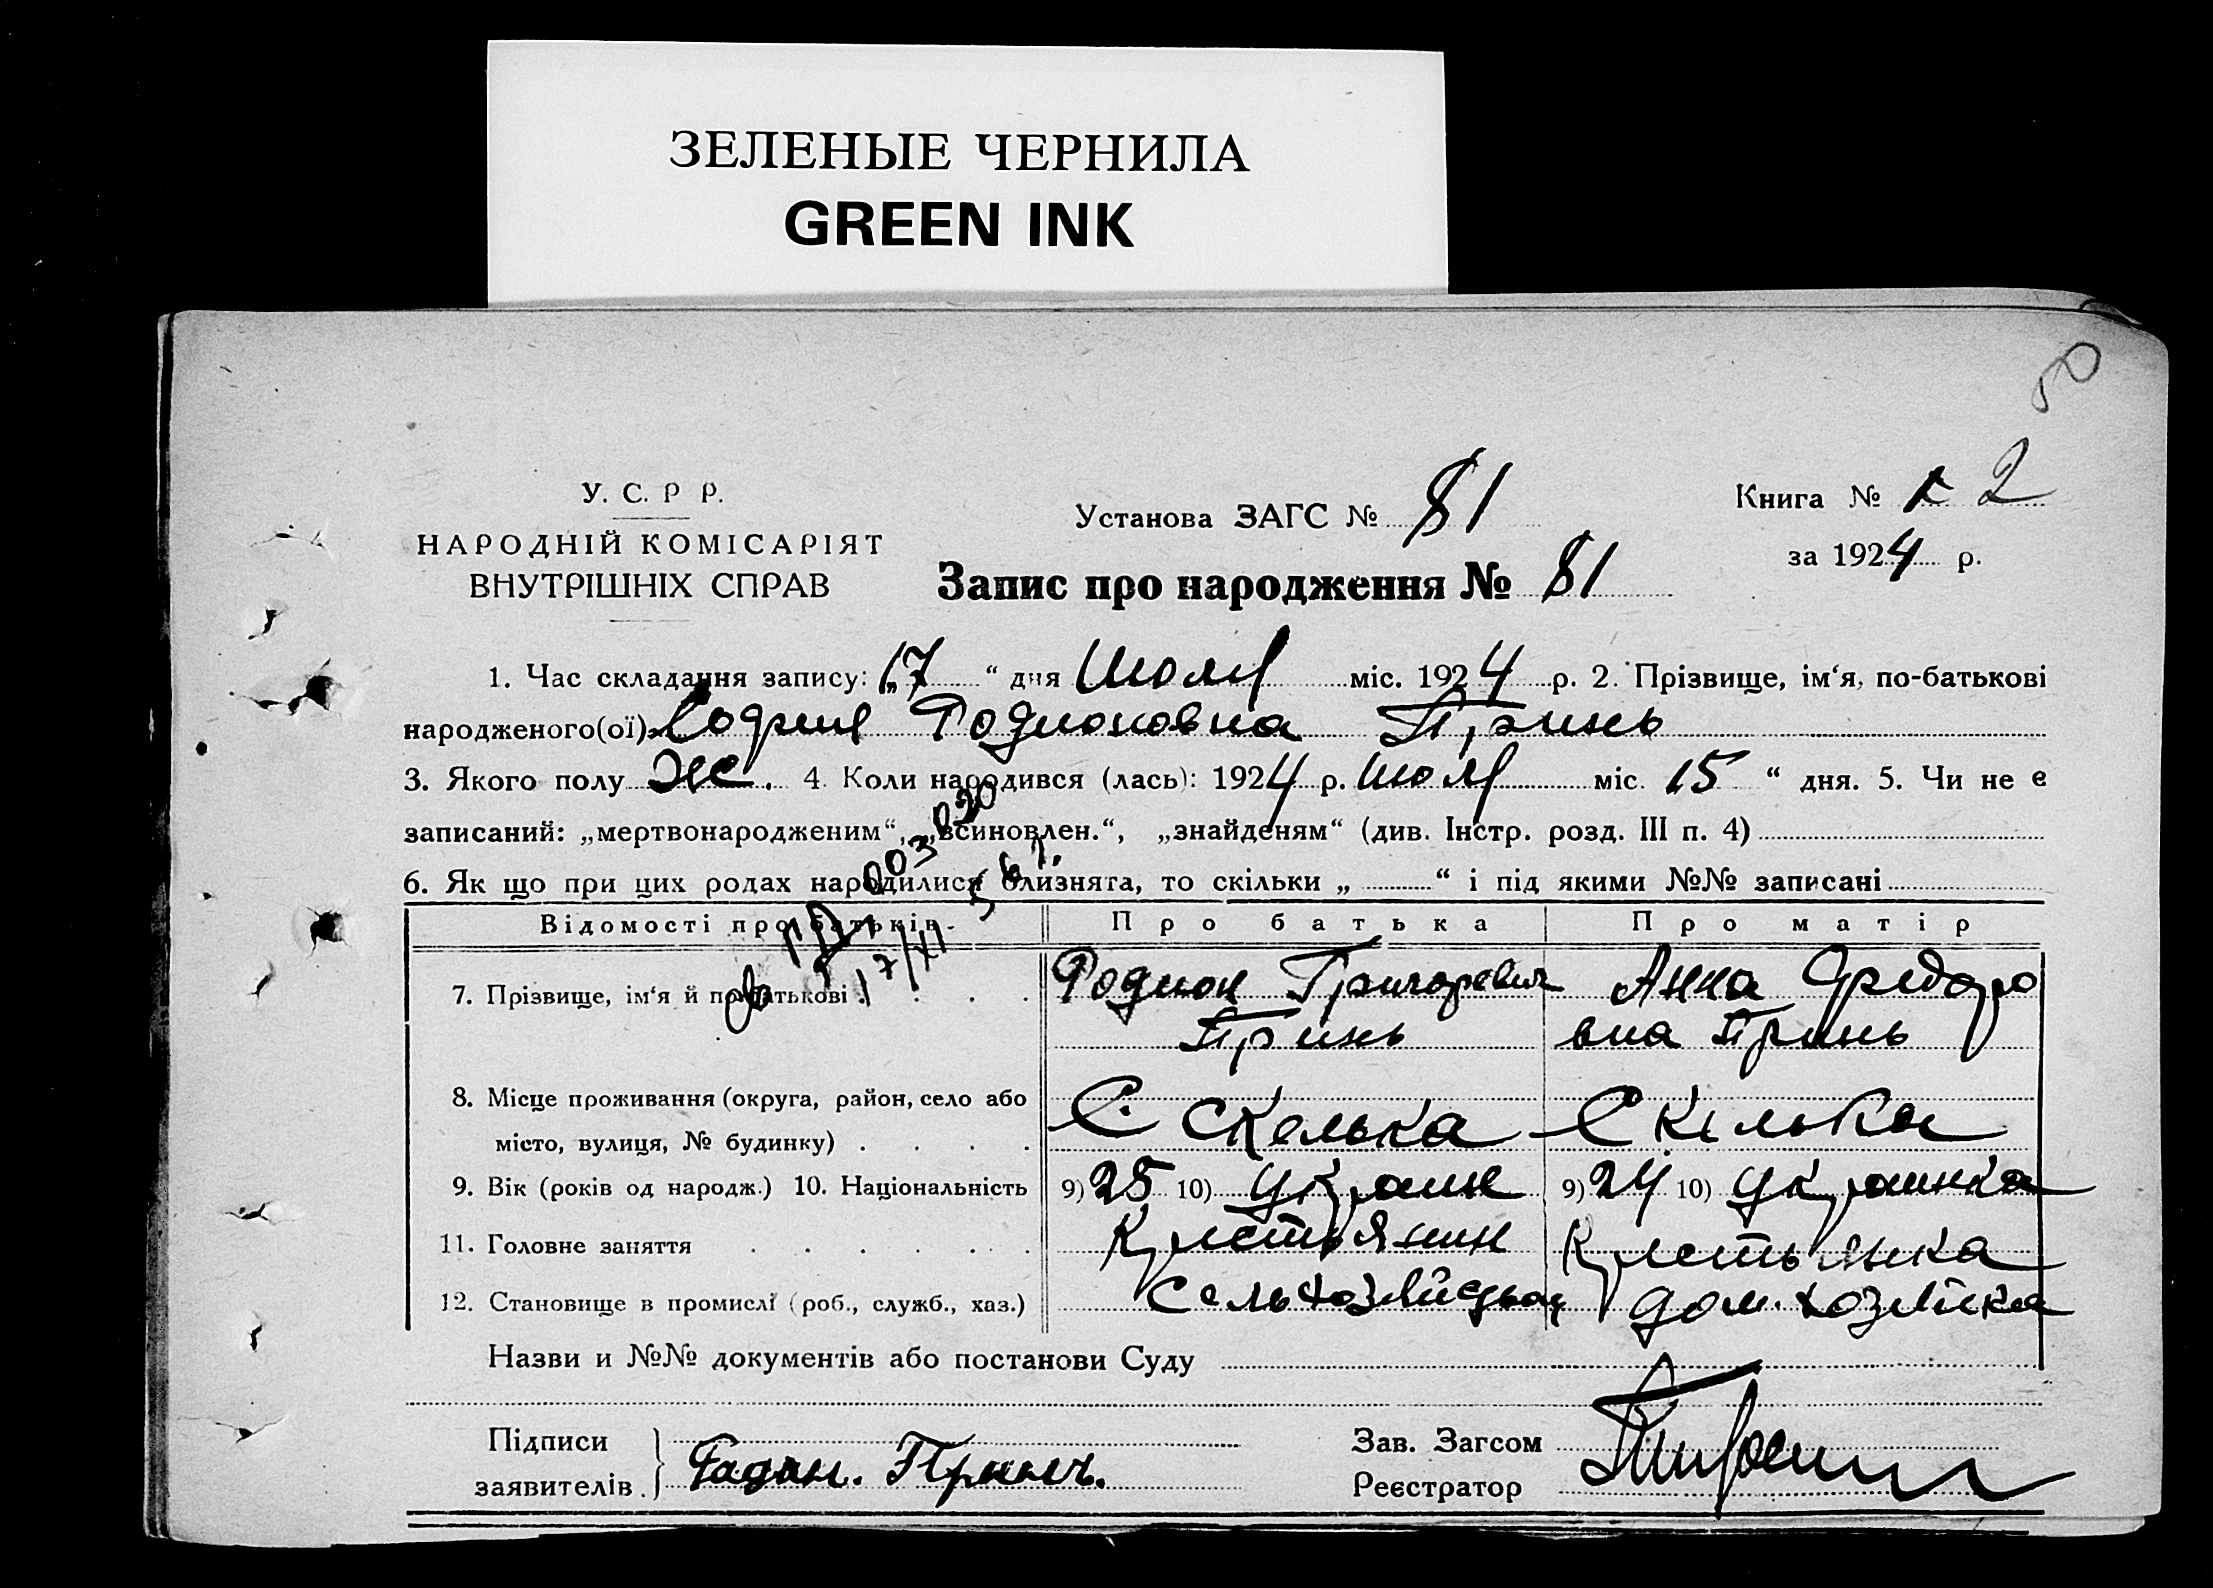 ЗЕЛЕНЫЕ ЧЕРНИЛА
GREEN INK
50
У. С. Р Р.
НАРОДНІЙ КОМІСАРІЯТ
ВНУТРІШНІХ СПРАВ
Установа ЗАГС № 81
Книга № 2
за 1924 р.
Запис про народження № 81
1. Час складання запису: „17“ дня Июля міс. 1924 р. 2. Прізвище, ім‘я, по-батькові
народженого(ої) София Родионовна Принь
3. Якого полу Же. 4. Коли народився (лась): 1924 р. Июля міс. 15 “ дня. 5. Чи не є
записаний: „мертвонародженим“, „всиновлен.“, „знайденям“ (див. Інстр. розд. III п. 4)
6. Як що при цих родах народилися близнята, то скільки „ “ і під якими №№ записані
Відомості про батьків. Про батька Про матір
7. Прізвище, ім‘я й по-батькові Родион Григоревич Анна Федоро
Принь вна Принь
8. Місце проживання (округа, район, село або
місто, вулиця, № будинку) С. Скелька Скелька
9. Вік (років од народж.) 10. Національність 9) 25 10) Украин 9) 24 10) Украинка
11. Головне заняття Крестьянин Крестьянка
12. Становище в промислі (роб., служб., хаз.) дом. хозяйка
Назви и №№ документів або постанови Суду
Підписи
заявителів Радион. Принь.
Зав. Загсом
Реєстратор